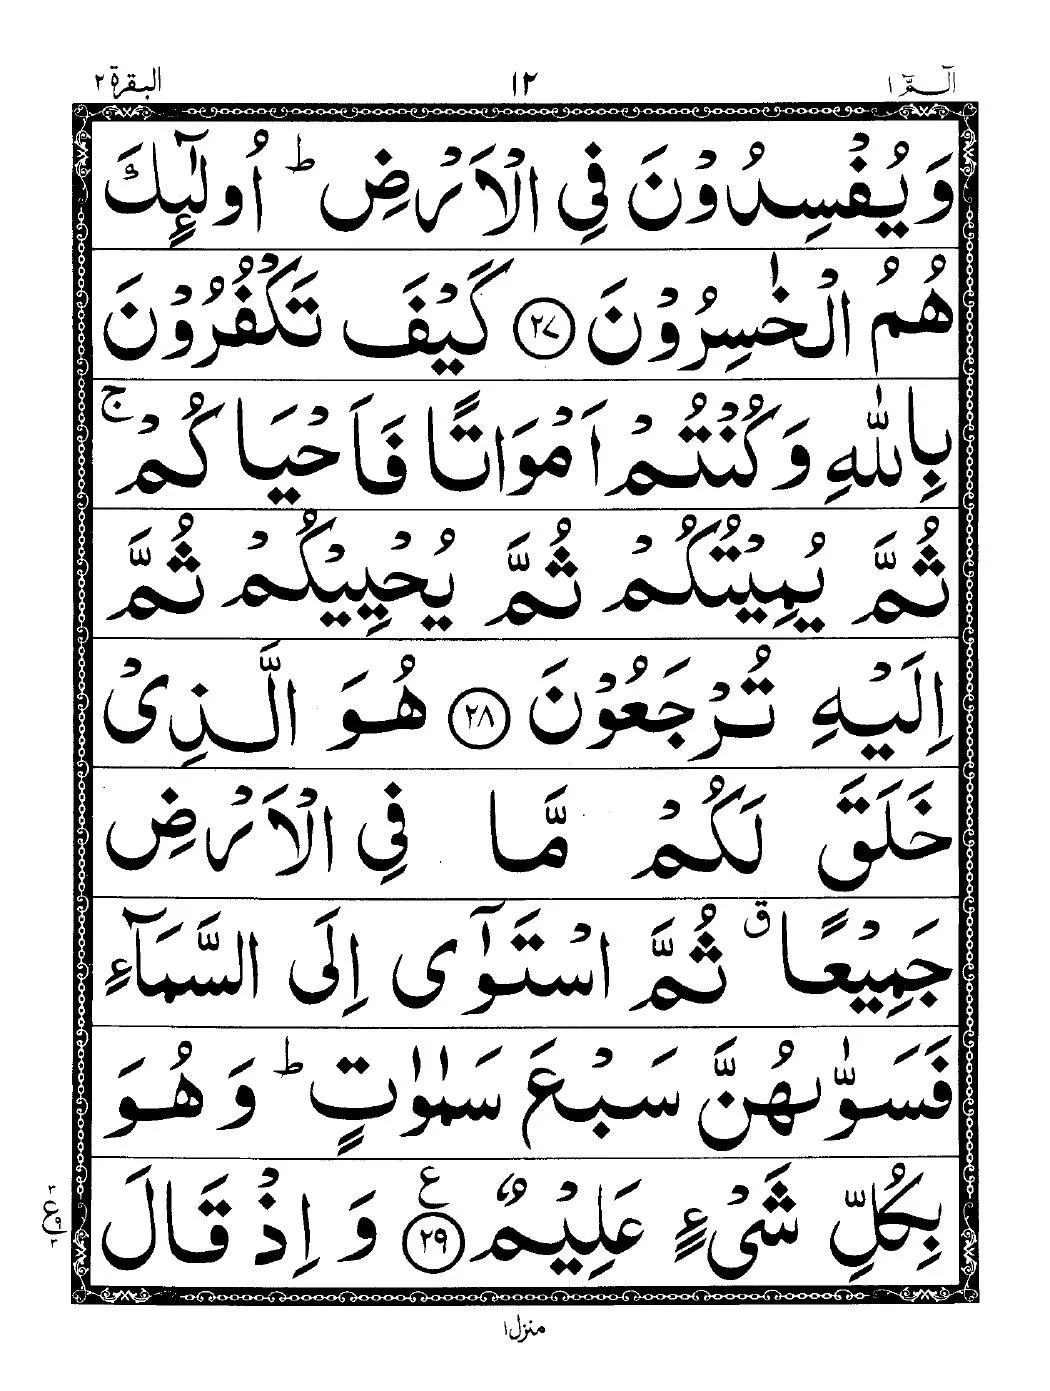 الٓـمّٓ ١ ١٢ البقرة ٢
وَيُفْسِدُوْنَ فِي الْاَرْضِ ؕ اُولٰٓئِكَ
هُمُ الْخٰسِرُوْنَ ﴿٢٧﴾ كَيْفَ تَكْفُرُوْنَ
بِاللّٰهِ وَكُنْتُمْ اَمْوَاتًا فَاَحْيَاكُمْ ۚ
ثُمَّ يُمِيْتُكُمْ ثُمَّ يُحْيِيْكُمْ ثُمَّ
اِلَيْهِ تُرْجَعُوْنَ ﴿٢٨﴾ هُوَ الَّذِيْ
خَلَقَ لَكُمْ مَّا فِي الْاَرْضِ
جَمِيْعًا ق ثُمَّ اسْتَوٰٓى اِلَى السَّمَآءِ
فَسَوّٰىهُنَّ سَبْعَ سَمٰوٰتٍ ؕ وَهُوَ
بِكُلِّ شَيْءٍ عَلِيْمٌ ﴿٢٩﴾ ع وَاِذْ قَالَ
٣ ع ٩ ٣
منزل ١